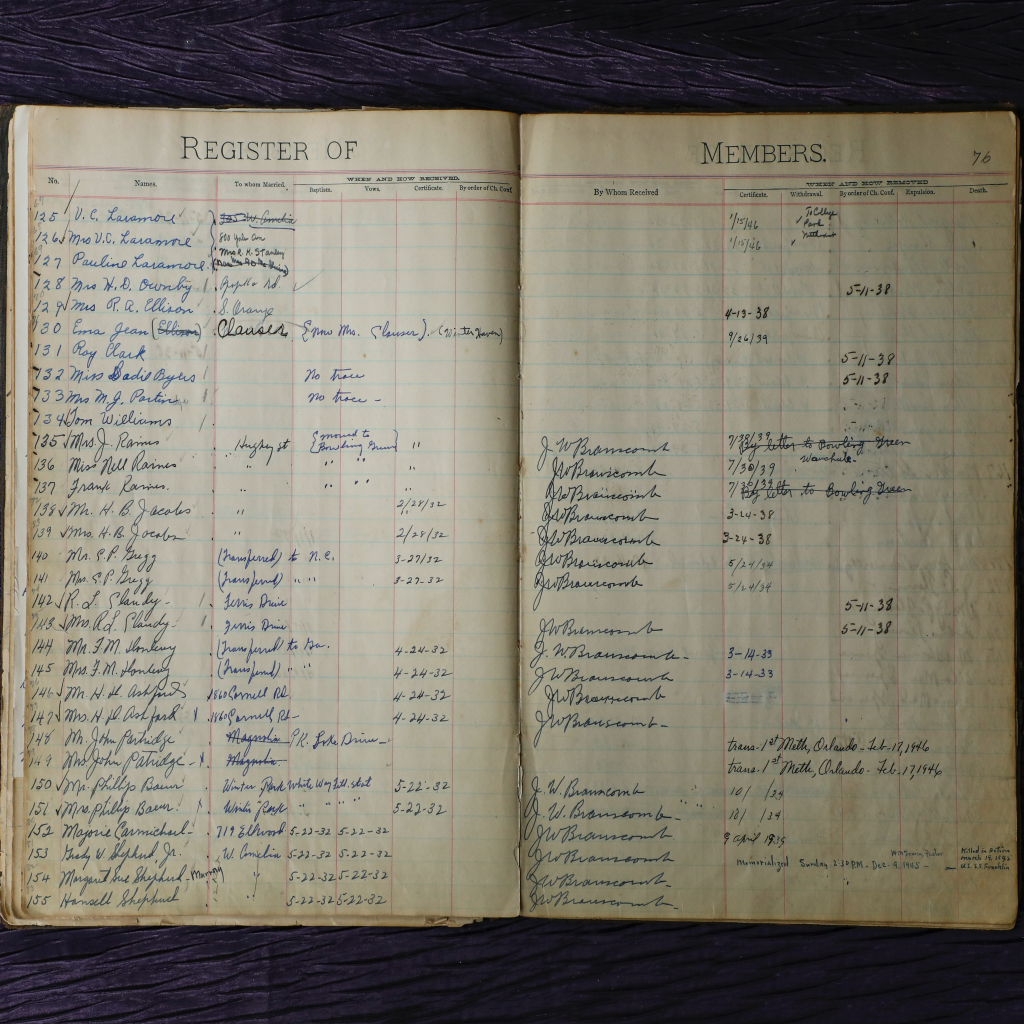 REGISTER OF MEMBERS. 76
WHEN AND HOW RECEIVED. WHEN AND HOW REMOVED
No. Names. To whom Married. Baptism. Vows. Certificate. By order of Ch. Conf. By Whom Received Certificate. Withdrawal. By order of Ch. Conf. Expulsion. Death.
125 V. C. Laramore W. Amelia 1/15/46 To College Park
126 Mrs V.C. Laramore 800 1/15/46
Mrs. R. H. Stanley
127 Pauline Laramore
128 Mrs H. D. Ownby Rd. 5-11-38
129 Mrs R. A. Ellison S. Orange 4-13-38
130 Ema Jean (Ellison) Clauser (Mrs. Clauser). (Winter Haven) 9/26/39
131 Roy Clark 5-11-38
132 Miss Sadie Byers No trace 5-11-38
133 Mrs M. J. Partin No trace -
134 Tom Williams
135 Mrs. J. Raines Hughey st {moved to Bowling Green} " J W Branscomb 7/30/39 By letter to Bowling Green
136 Miss Nell Raines " " " " JWBranscomb 7/30/39 Wauchula-
137 Frank Raines " " " " JWBranscomb 7/30/39 By letter to Bowling Green
138 Mr. H. B Jacobs " 2/28/32 JWBranscomb 3-24-38
139 Mrs. H. B. Jacobs " 2/28/32 JWBranscomb 3-24-38
140 Mr. E. P. Gregg (Transferred) to N. C. 3-27/32 JWBranscomb 5/24/34
141 Mrs. E. P. Gregg (Transferred) " " 3-27-32 JWBranscomb 5/24/34
142 R. L. Glandy- Ferris Drive 5-11-38
143 Mrs. R.L. Glandy- Ferris Drive JWBranscomb 5-11-38
144 Mr. F. M. (Transferred) to Ga. 4-24-32 J. W. Branscomb- 3-14-33
145 Mrs. F. M. (Transferred) " " 4-24-32 J W Branscomb 3-14-33
146 Mr. H. H. Ashford 1860 Cornell Rd. 4-24-32 JWBranscomb
147 Mrs H. H. Ashford 1860 Cornell Rd- 4-24-32 JWBranscomb-
148 Mr. John Partridge Magnolia Lake Drive- trans. 1st Meth, Orlando - Feb. 17, 1946
149 Mrs John Patridge- Magnolia- trans. 1st Meth, Orlando - Feb. 17, 1946
150 Mr. Phillip Bauer Winter Park White Way 5-22-32 J. W. Branscomb 10/ /34
151 Mrs. Philip Bauer Winter Park " " " " 5-22-32 J. W. Branscomb- 10/ /34
152 Majorie Carmichael- 719 Ellwood 5-22-32 5-22-32 JWBranscomb 9 April 1935
153 Grady W Shepherd Jr. W. Amelia 5-22-32 5-22-32 JWBranscomb Memorialized Sunday 2:30 P.M. - Dec. 9, 1945 - Killed in Action March 19, 1945 U.S.S. Franklin
154 Margaret Sue Shepherd " " 5-22-32 5-22-32 JWBranscomb-
155 Hansell Shepherd " " 5-22-32 5-22-32 JWBranscomb-